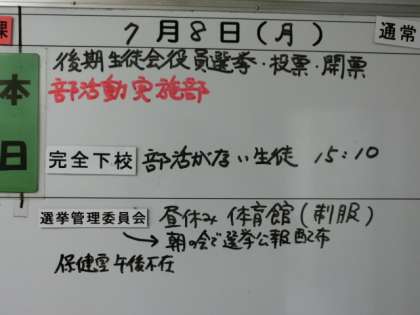 課
7月8日(月)
通常
本日
後期生徒会役員選挙・投票・開票
部活動実施部
完全下校 部活がない生徒 15:10
選挙管理委員会 昼休み 体育館(制服)
→朝の会で選挙公報配布
保健室午後不在